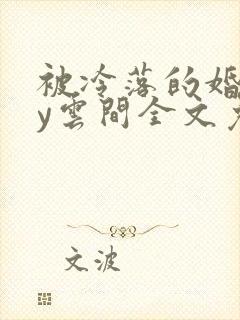 被冷落的婚
y雲間全文
文波